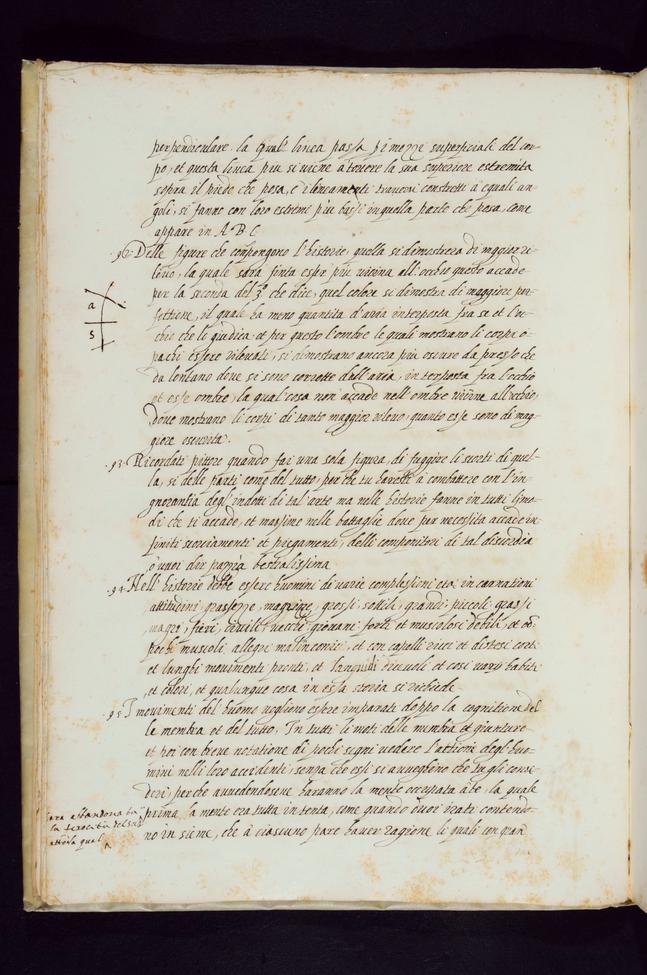 perpendiculare. la qual' linea passa p il mezzo superficiale del cor-
po, et questa linea piu si viene à torcere la sua superiore estremita
sopra il piede che posa, e i lineamenti traversi constretti à equali an-
goli, si fanno con loro estremi piu bassi in quella parte che posa, come
appare in A B C
92 Delle figure che compongono l'historie, quella si dimostrera di maggior ri-
levo, la quale sara finta esser piu vicina all'occhio questo accade
per la seconda del 3.º che dice, quel colore si dimostra di maggiore per-
fettione, il quale ha meno quantita d'aria interposta fra se et l'oc-
chio che lo giudica. et per questo l'ombre le quali mostrano li corpi o-
pachi essere rilevati, si dimostrano ancora piu oscure da presso che
da lontano dove si sono corrotte dall'aria, interposta fra l'occhio
et esse ombre, la qual cosa non accade nell'ombre vicine all'occhio,
dove mostrano li corpi di tanto maggior rilevo, quanto esse sono di mag-
giore oscurita.
93 Ricordati pittore quando fai una sola figura, di fuggire li scorti di quel-
la, si delle parti come del tutto, perche tu haresti à combattere con l'in-
gnorantia degl'indotti di tal'arte ma nelle historie fanne in tutti li mo-
di che ti accade, et massime nelle battaglie dove per necessita accade in
finiti scorciamenti et piegamenti, delli componitori di tal discordia
o vuoi dir pazzia bestialissima
94 Nell'historie debbe essere huomini di varie complessioni eta, in carnationi
attitudini, grassezze, magrezze, grossi, sottili, grandi, piccoli, grassi
magri, fieri, civili, vecchi, giovani forti et musculosi debili, et con
pochi musculi, allegri malinconici, et con capelli ricci et distesi corti
et lunghi movimenti pronti, et languidi et cosi varij habiti
et colori, et qualunque cosa in essa storia si richiede
95 I movimenti del huomo vogliono essere imparati doppo la cognitione del
le membra et del tutto, In tutti li moti delle membra et giunture
et poi con breve notatione di pochi segni vedere l'attioni degl'huo-
mini nelli loro accidenti, senza che essi si avvegghino che tu gli consi-
deri, perche avvedendosene haranno la mente occupata à te, la quale
prima la mente era tutta intenta, come quando duoi irati contendo-
no insieme, che à ciascuno pare haver ragione li quali con gran
a
S
ara abbandonata
la ferocita del suo
atto la qual